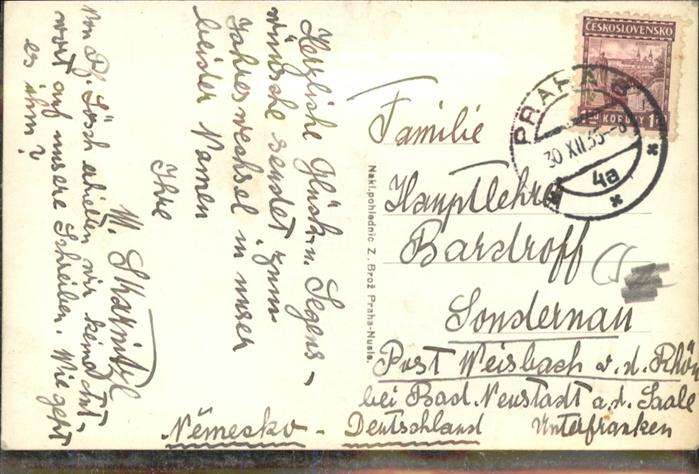 Herzliche Glück- u. Segens-
wünsche sendet zum
Jahreswechsel in unser
beider Namen
Ihre
M. Skarnitzl
Von Pf. Lösch erhielten wir keine Ant-
wort auf unsere Schreiben. Wie geht
es ihm?
Nakl. pohlednic Z. Brož Praha-Nusle.
ČESKOSLOVENSKO
KORUNY
PRAHA
30 XII 35
4a
Familie
Hauptlehrer
Bardroff
Sondernau
Post Weisbach v. d. Rhön
bei Bad Neustadt a. d. Saale
Německo - Deutschland Unterfranken